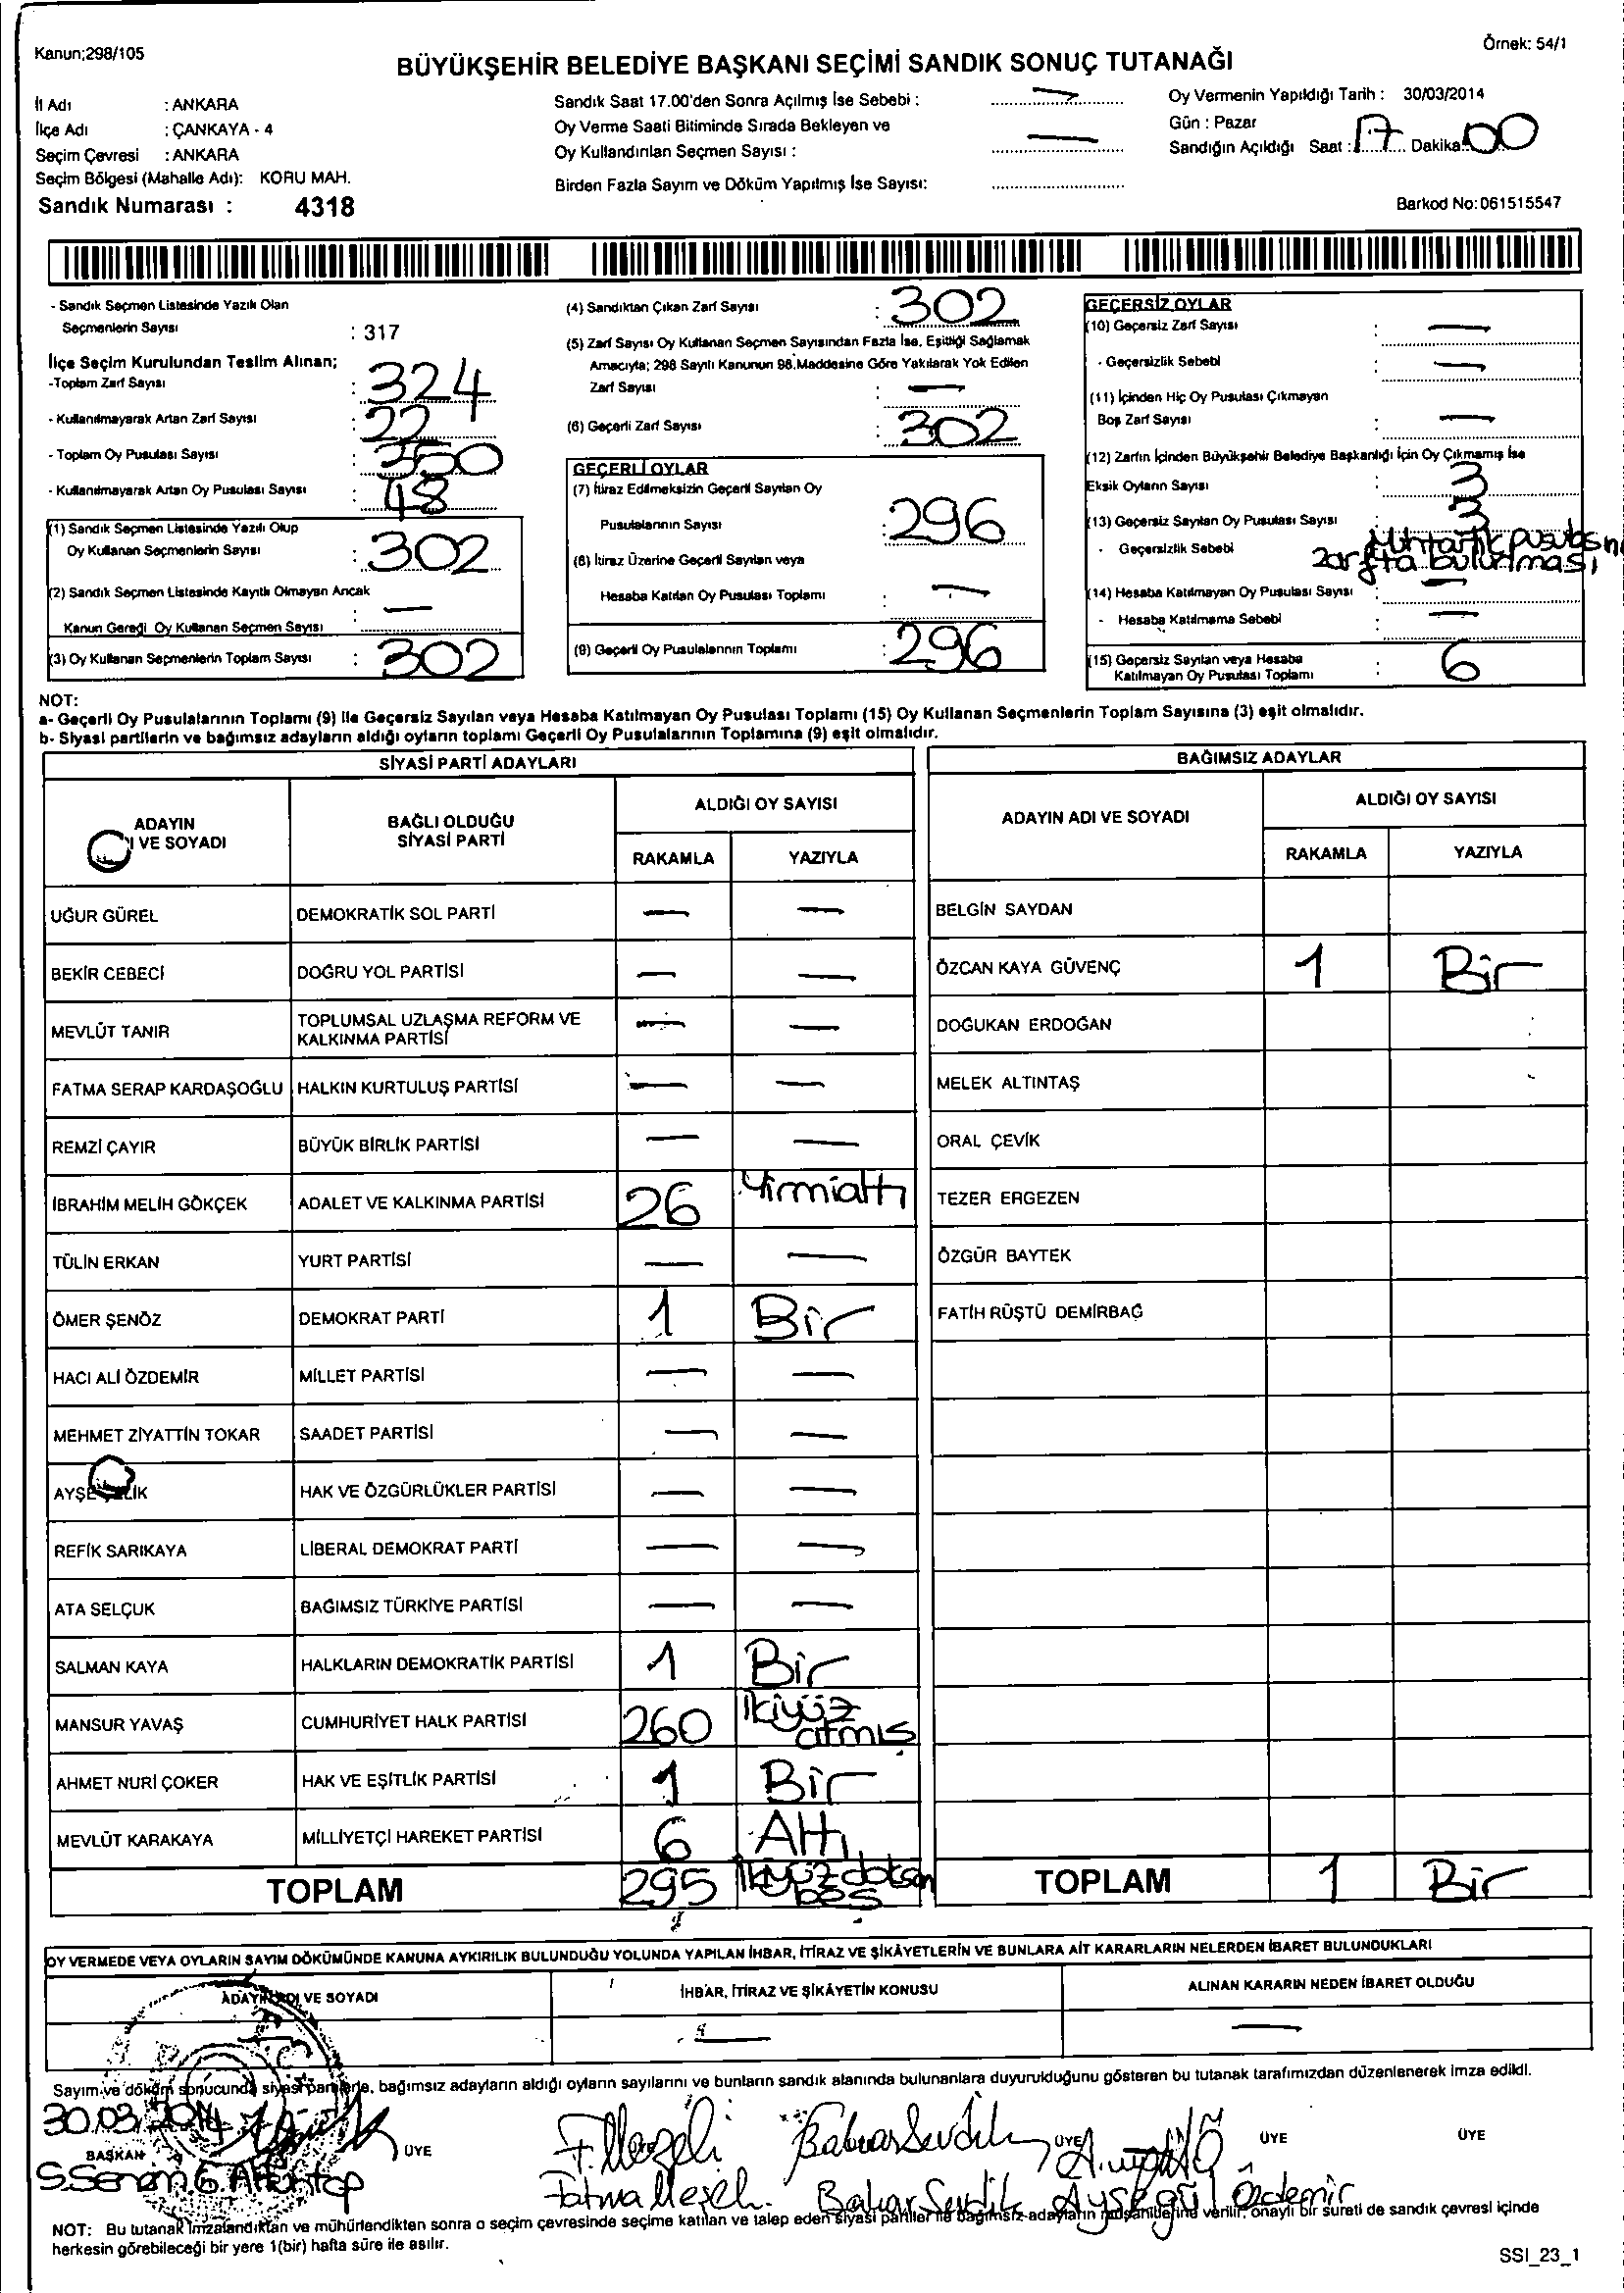 Kanun;298/105
Örnek: 54/1
BÜYÜKŞEHİR BELEDİYE BAŞKANI SEÇİMİ SANDIK SONUÇ TUTANAĞI
İl Adı : ANKARA
İlçe Adı : ÇANKAYA - 4
Seçim Çevresi : ANKARA
Seçim Bölgesi (Mahalle Adı): KORU MAH.
Sandık Numarası : 4318
Sandık Saat 17.00'den Sonra Açılmış İse Sebebi : —
Oy Verme Saati Bitiminde Sırada Bekleyen ve
Oy Kullandırılan Seçmen Sayısı : —
Birden Fazla Sayım ve Döküm Yapılmış İse Sayısı:
Oy Vermenin Yapıldığı Tarih : 30/03/2014
Gün : Pazar
Sandığın Açıldığı Saat : 17 Dakika: 00
Barkod No:061515547
- Sandık Seçmen Listesinde Yazılı Olan
Seçmenlerin Sayısı : 317
İlçe Seçim Kurulundan Teslim Alınan;
-Toplam Zarf Sayısı : 324
- Kullanılmayarak Artan Zarf Sayısı : 22
- Toplam Oy Pusulası Sayısı : 350
- Kullanılmayarak Artan Oy Pusulası Sayısı : 48
(1) Sandık Seçmen Listesinde Yazılı Olup
Oy Kullanan Seçmenlerin Sayısı : 302
(2) Sandık Seçmen Listesinde Kayıtlı Olmayan Ancak
Kanun Gereği Oy Kullanan Seçmen Sayısı : —
(3) Oy Kullanan Seçmenlerin Toplam Sayısı : 302
(4) Sandıktan Çıkan Zarf Sayısı : 302
(5) Zarf Sayısı Oy Kullanan Seçmen Sayısından Fazla İse, Eşitliği Sağlamak
Amacıyla; 298 Sayılı Kanunun 98.Maddesine Göre Yakılarak Yok Edilen
Zarf Sayısı : —
(6) Geçerli Zarf Sayısı : 302
GEÇERLİ OYLAR
(7) İtiraz Edilmeksizin Geçerli Sayılan Oy
Pusulalarının Sayısı : 296
(8) İtiraz Üzerine Geçerli Sayılan veya
Hesaba Katılan Oy Pusulası Toplamı : —
(9) Geçerli Oy Pusulalarının Toplamı : 296
GEÇERSİZ OYLAR
(10) Geçersiz Zarf Sayısı : —
- Geçersizlik Sebebi : —
(11) İçinden Hiç Oy Pusulası Çıkmayan
Boş Zarf Sayısı : —
(12) Zarfın İçinden Büyükşehir Belediye Başkanlığı İçin Oy Çıkmamış İse
Eksik Oyların Sayısı : 3
(13) Geçersiz Sayılan Oy Pusulası Sayısı : 3
- Geçersizlik Sebebi Muhtarlık pusulasının
zarfta bulunması
(14) Hesaba Katılmayan Oy Pusulası Sayısı : —
- Hesaba Katılmama Sebebi : —
(15) Geçersiz Sayılan veya Hesaba
Katılmayan Oy Pusulası Toplamı : 6
NOT:
a- Geçerli Oy Pusulalarının Toplamı (9) ile Geçersiz Sayılan veya Hesaba Katılmayan Oy Pusulası Toplamı (15) Oy Kullanan Seçmenlerin Toplam Sayısına (3) eşit olmalıdır.
b- Siyasi partilerin ve bağımsız adayların aldığı oyların toplamı Geçerli Oy Pusulalarının Toplamına (9) eşit olmalıdır.
SİYASİ PARTİ ADAYLARI
ADAYIN
VE SOYADI
BAĞLI OLDUĞU
SİYASİ PARTİ
ALDIĞI OY SAYISI
RAKAMLA YAZIYLA
UĞUR GÜREL DEMOKRATİK SOL PARTİ — —
BEKİR CEBECİ DOĞRU YOL PARTİSİ — —
MEVLÜT TANIR TOPLUMSAL UZLAŞMA REFORM VE KALKINMA PARTİSİ — —
FATMA SERAP KARDAŞOĞLU HALKIN KURTULUŞ PARTİSİ — —
REMZİ ÇAYIR BÜYÜK BİRLİK PARTİSİ — —
İBRAHİM MELİH GÖKÇEK ADALET VE KALKINMA PARTİSİ 26 Yirmialtı
TÜLİN ERKAN YURT PARTİSİ — —
ÖMER ŞENÖZ DEMOKRAT PARTİ 1 Bir
HACI ALİ ÖZDEMİR MİLLET PARTİSİ — —
MEHMET ZİYATTİN TOKAR SAADET PARTİSİ — —
AYŞE ÇELİK HAK VE ÖZGÜRLÜKLER PARTİSİ — —
REFİK SARIKAYA LİBERAL DEMOKRAT PARTİ — —
ATA SELÇUK BAĞIMSIZ TÜRKİYE PARTİSİ — —
SALMAN KAYA HALKLARIN DEMOKRATİK PARTİSİ 1 Bir
MANSUR YAVAŞ CUMHURİYET HALK PARTİSİ 260 İkiyüz atmış
AHMET NURİ ÇOKER HAK VE EŞİTLİK PARTİSİ 1 Bir
MEVLÜT KARAKAYA MİLLİYETÇİ HAREKET PARTİSİ 6 Altı
TOPLAM 295 İkiyüz doksan beş
BAĞIMSIZ ADAYLAR
ADAYIN ADI VE SOYADI
ALDIĞI OY SAYISI
RAKAMLA YAZIYLA
BELGİN SAYDAN
ÖZCAN KAYA GÜVENÇ 1 Bir
DOĞUKAN ERDOĞAN
MELEK ALTINTAŞ
ORAL ÇEVİK
TEZER ERGEZEN
ÖZGÜR BAYTEK
FATİH RÜŞTÜ DEMİRBAĞ
TOPLAM 1 Bir
OY VERMEDE VEYA OYLARIN SAYIM DÖKÜMÜNDE KANUNA AYKIRILIK BULUNDUĞU YOLUNDA YAPILAN İHBAR, İTİRAZ VE ŞİKÂYETLERİN VE BUNLARA AİT KARARLARIN NELERDEN İBARET BULUNDUKLARI
ADAYIN ADI VE SOYADI İHBAR, İTİRAZ VE ŞİKÂYETİN KONUSU ALINAN KARARIN NEDEN İBARET OLDUĞU
— —
Sayım ve döküm sonucunda siyasi partilerle, bağımsız adayların aldığı oyların sayılarını ve bunların sandık alanında bulunanlara duyurulduğunu gösteren bu tutanak tarafımızdan düzenlenerek imza edildi.
30.03.2014
BAŞKAN ÜYE ÜYE ÜYE ÜYE
Fatma Bahar Sevdik Ayşegül Özdemir
NOT: Bu tutanak imzalandıktan ve mühürlendikten sonra o seçim çevresinde seçime katılan ve talep eden siyasi partiler ile bağımsız adayların müşahitlerine verilir, onaylı bir sureti de sandık çevresi içinde
herkesin görebileceği bir yere 1(bir) hafta süre ile asılır.
SSI_23_1